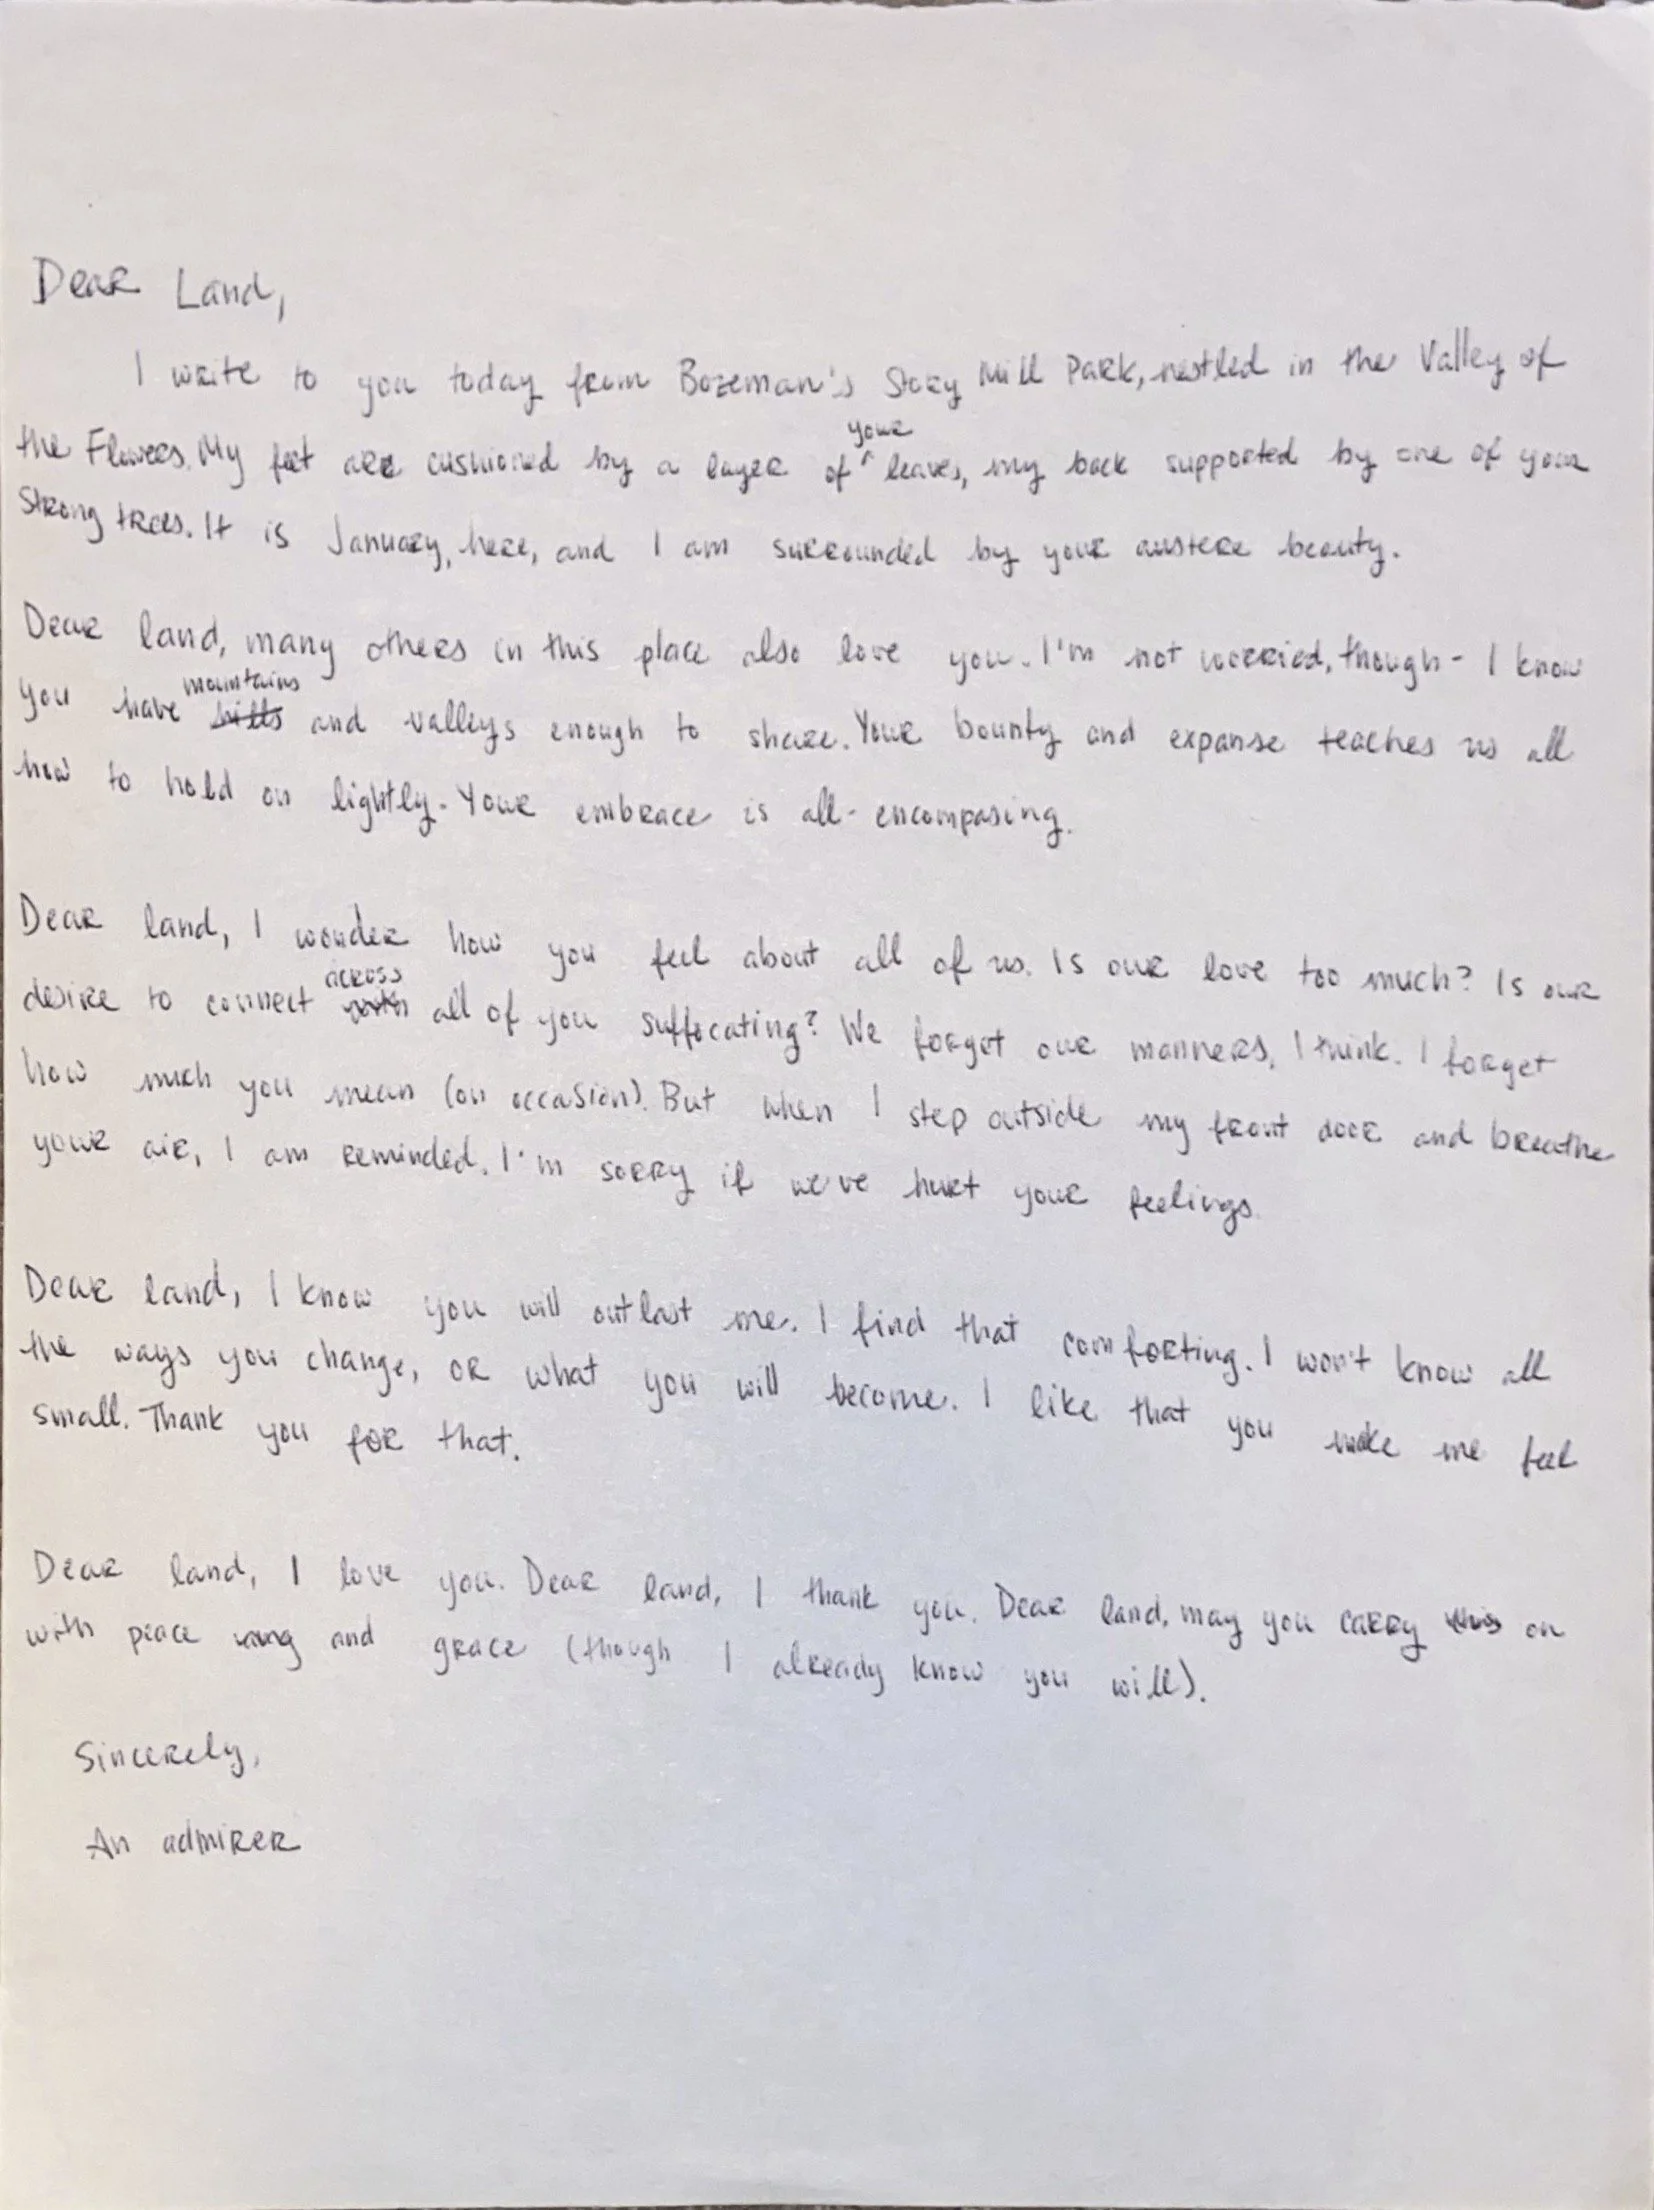 Dear Land,
I write to you today from Bozeman's Story Mill Park, nestled in the Valley of
the Flowers. My feet are cushioned by a layer of your leaves, my back supported by one of your
strong trees. It is January, here, and I am surrounded by your austere beauty.
Dear land, many others in this place also love you. I'm not worried, though - I know
you have hills mountains and valleys enough to share. Your bounty and expanse teaches us all
how to hold on lightly. Your embrace is all-encompasing.
Dear land, I wonder how you feel about all of us. Is our love too much? Is our
desire to connect across all of you suffocating? We forget our manners, I think. I forget
how much you mean (on occasion). But when I step outside my front door and breathe
your air, I am reminded. I'm sorry if we've hurt your feelings.
Dear land, I know you will outlast me. I find that comforting. I won't know all
the ways you change, or what you will become. I like that you make me feel
small. Thank you for that.
Dear land, I love you. Dear land, I thank you. Dear land, may you carry on
with peace and grace (though I already know you will).
Sincerely,
An admirer